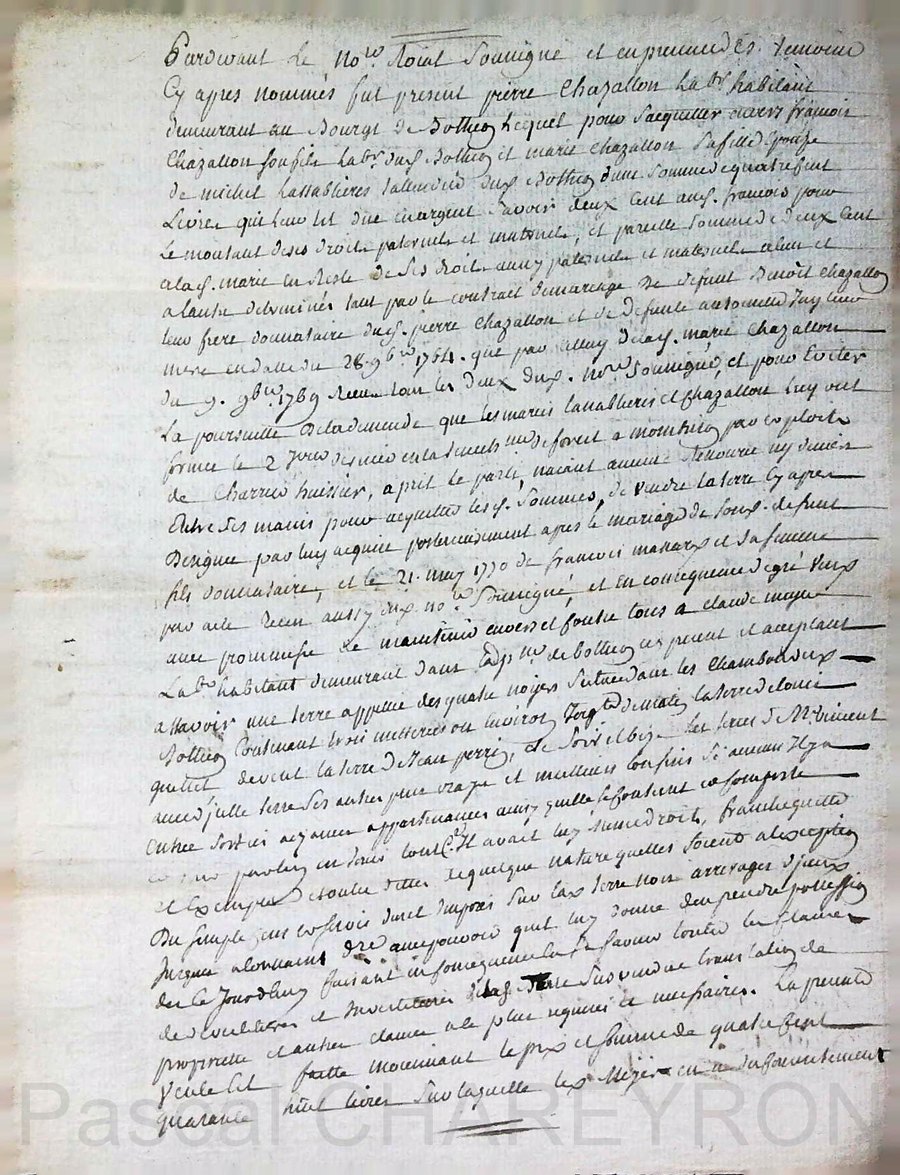 Pardevant Le no.re Roial Soussigné et en presence des temoins
Cy apres nommés fut present pierre Chazallon lab.r habitant
demeurant au Bourgt de Bothéon Lequel pour s'acquitter envers françois
Chazallon son fils lab.r dud. Bothéon et marie Chazallon sa fille Epouse
de michel Lassablieres dud. Bothéon d'une Somme de quatre Cent
Livres qui leur est due en argent Savoir deux Cent aud. francois pour
Le montant de ses droits paternels et maternels, et pareille Somme de deux Cent
a lad. marie en Reste de Ses droits aussy paternels et maternels
tant par le contrat de mariage de defunt Benoit Chazallon
leur frere donnataire dud. pierre Chazallon et de defunte antoinette leur
mere en datte du 28. 9b.re 1764. que par celluy de lad. marie Chazallon
du 9. 9b.re 1769 Recu tous les deux dud. no.re Soussigné, et pour Eviter
La poursuitte De la demande que les mariés Lassablieres et Chazallon luy ont
formée le 2 dernier en la de forest a montbrison par exploit
de Charrier huissier, a pris le parti, n'aiant aucune ny deniers
Entre Ses mains pour acquitter les d. Sommes, de vendre la terre Cy apres
Designée par luy acquise posterieurement apres le mariage de Sond. defunt
fils donnataire, et le 21. may 1770 de francois et Sa femme
par acte Recu aussy dud. no.re Soussigné, et En consequence de gré vend
avec promesse de maintenir envers et contre tous a claude
Lab.r habitant demeurant dans lad. p.sse de bothéon icy present et acceptant
a Savoir une terre appellée des quatre noyers Scituée dans les Chambons dud.
Bothéon Contenant trois metterées ou Environ de matin la terre de Louis
devent la terre de Jean perrin, de Soir et bize les terres de M.r vincent
avec d'icelle terre Ses autres plus vrays et meilleurs confins Si aucuns Il y a
entrée Sorties aizances appartenances ainsy qu'elle Se Contient et Comporte
en tous tout C. Il avait luy même droit, franche quitte
et Exempte de toutes dettes de quelque nature qu'elles Soient a l'exception
Du Simple Cens et Servis dus et Imposés Sur lad. terre non arreragés d'Iceux
Jusques a Contrains avec pouvoir qu'il luy donne d'en prendre possession
des Ce Jourd'huy faisant en Consequence Sa faveur toutes les Clauses
de et Investitures Terre Subvendue translation de
proprietté et autres clauses a ce plus requises et necessaires. La presente
vente Est faitte moiennant le prix et Somme de quatre Cent
quarante huit livres Sur laquelle led.
Pascal CHAREYRON